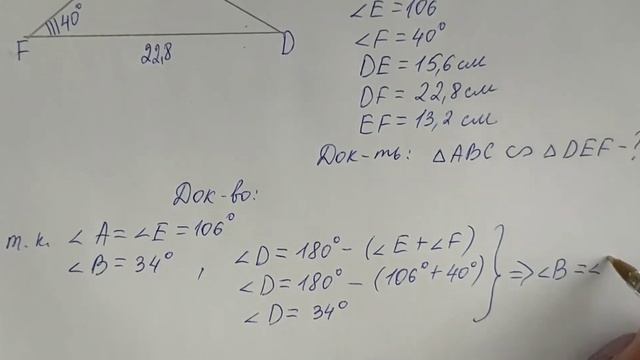 40°
F
22,8
D
∠E = 106
∠F = 40°
DE = 15,6 см
DF = 22,8 см
EF = 13,2 см
Док-ть: △ABC ∽ △DEF - ?
Док-во:
т.к. ∠A = ∠E = 106°
∠B = 34° ,
∠D = 180° - (∠E + ∠F)
∠D = 180° - (106° + 40°)
∠D = 34°
} ⇒ ∠B = ∠